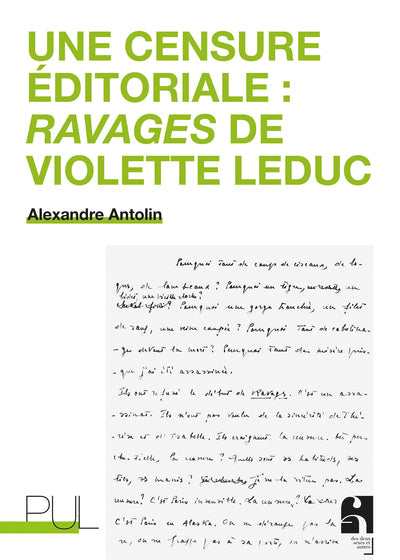 UNE CENSURE
ÉDITORIALE :
RAVAGES DE
VIOLETTE LEDUC
Alexandre Antolin
Pourquoi tant de coups de ciseaux, de lo-
ques, de lambeaux ? Pourquoi un tigre,
Pourquoi une gorge tranchée, un filet
de sang, une veine coupée ? Pourquoi tant de cabotina-
-ge devant la mort ? Pourquoi tant de misère puis-
-que j'ai été assassinée.
Ils ont refusé le début de Ravages. C'est un assa-
-ssinat. Ils n'ont pas voulu de la sincérité de Thé-
-rèse et d'Isabelle. Ils craignent la censure.
la censure ? Quelles sont ses habitudes, ses
ses manies ? je ne la vois pas. La
censure ? C'est Paris insensible. La censure ?
C'est Paris en Alaska. On ne dérange pas la
on ne frappe pas à sa porte, on n'
PUL
des deux
sexes et
autres